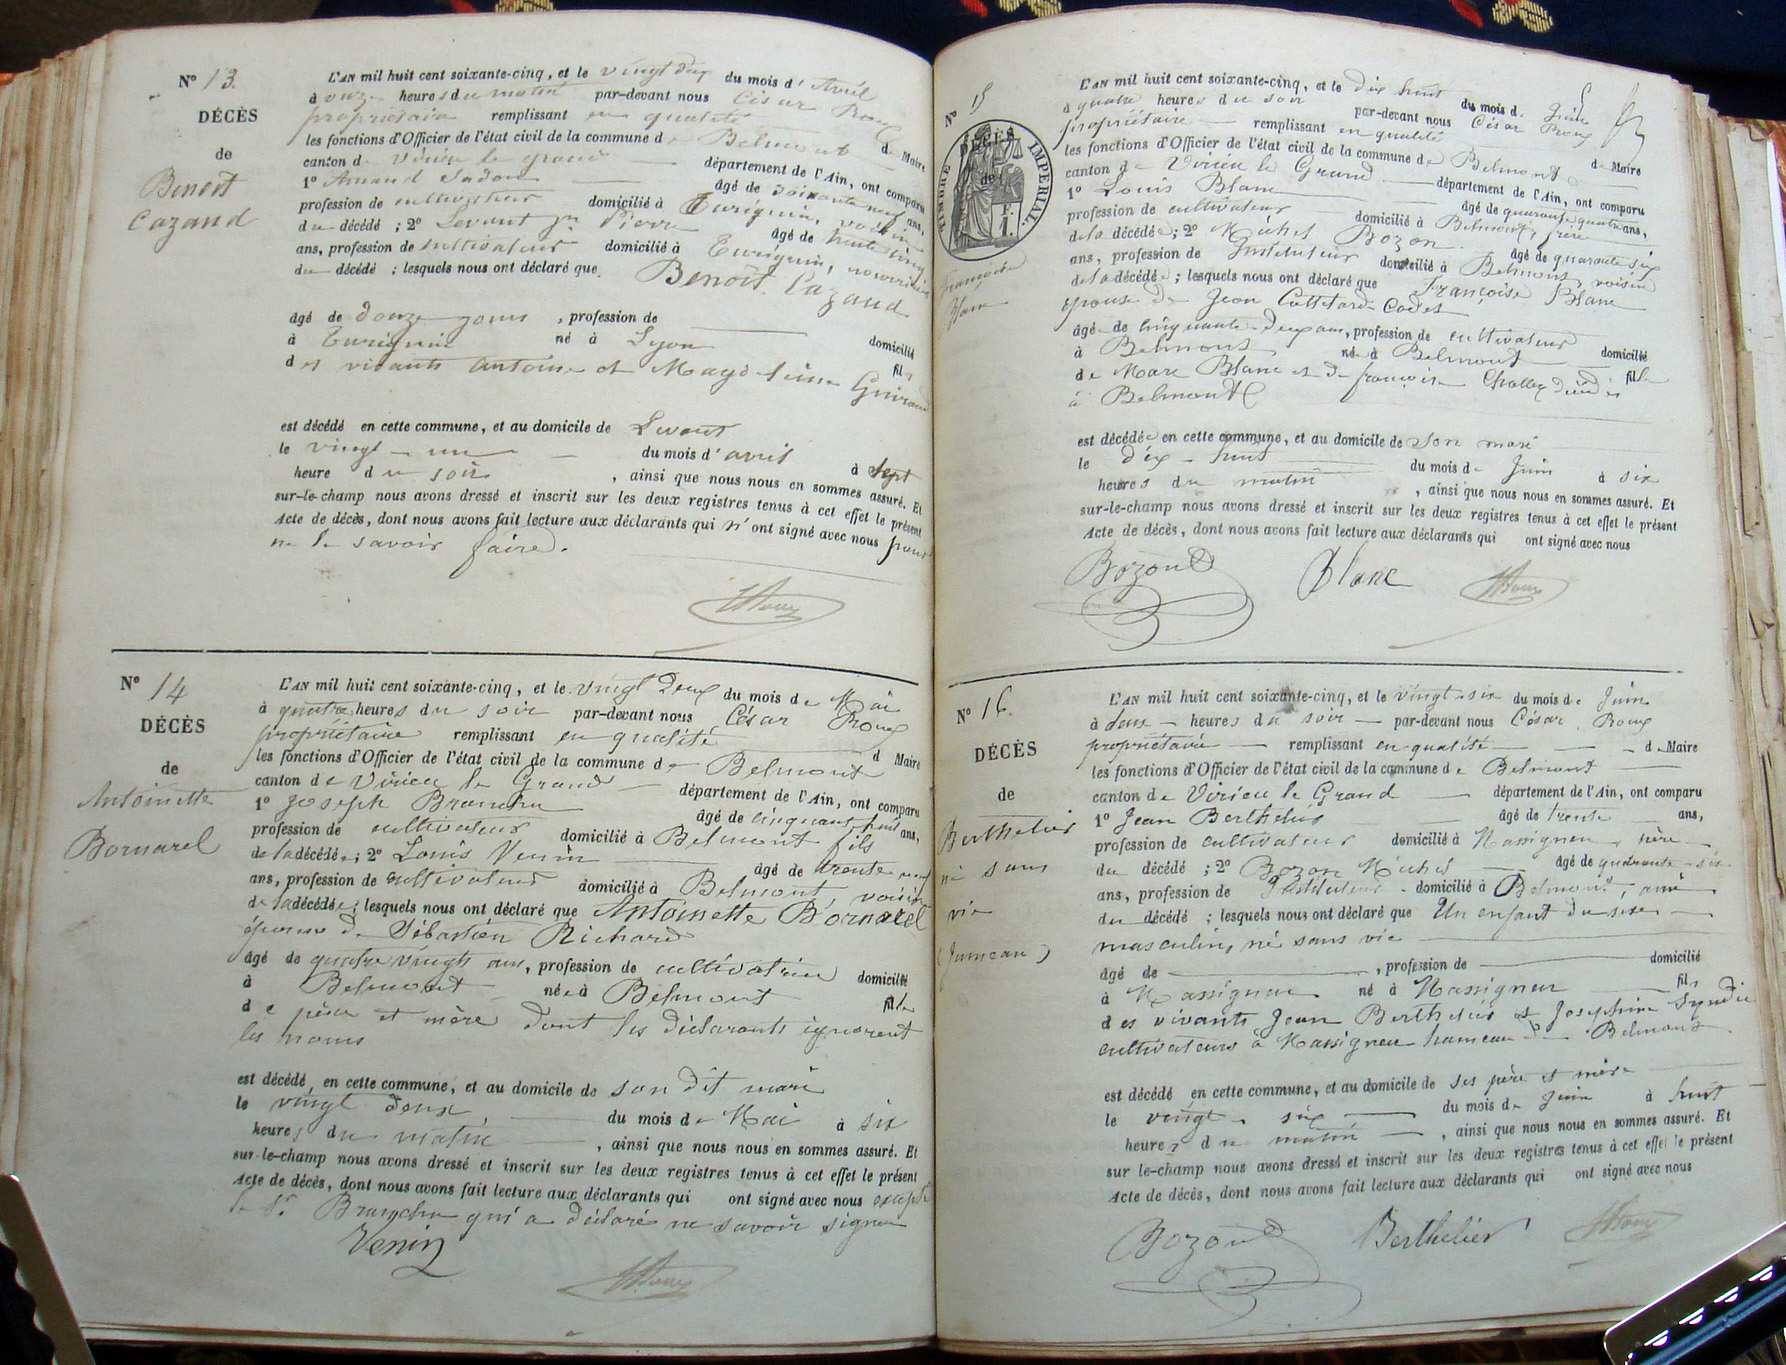 N° 13
DÉCÈS
de
Benoit
Cazand
L'AN mil huit cent soixante-cinq, et le vingt deux du mois d'Avril
à onze heures du matin par-devant nous César Roux
propriétaire remplissant en qualité de Maire
les fonctions d'Officier de l'état civil de la commune de Belmont
canton de Virieu le grand département de l'Ain, ont comparu
1° âgé de soixante neuf ans,
profession de cultivateur domicilié à voisin
du décédé ; 2° Levant Pierre âgé de trente cinq
ans, profession de cultivateur domicilié à nourricier
du décédé ; lesquels nous ont déclaré que Benoît Cazand
âgé de douze jours, profession de domicilié
à né à Lyon fils
des vivants Antoine et
est décédé en cette commune, et au domicile de Levant
le vingt-un du mois d'avril à sept
heure du soir, ainsi que nous nous en sommes assuré. Et
sur-le-champ nous avons dressé et inscrit sur les deux registres tenus à cet effet le présent
Acte de décès, dont nous avons fait lecture aux déclarants qui n'ont signé avec nous pour
ne le savoir faire.
N° 14
DÉCÈS
de
Antoinette
Bornarel
L'AN mil huit cent soixante-cinq, et le vingt deux du mois de Mai
à quatre heures du soir par-devant nous César Roux
propriétaire remplissant en qualité de Maire
les fonctions d'Officier de l'état civil de la commune de Belmont
canton de Virieu le Grand département de l'Ain, ont comparu
1° Joseph âgé de cinquante huit ans,
profession de cultivateur domicilié à Belmont fils
de la décédée ; 2° Louis Venin âgé de trente neuf
ans, profession de cultivateur domicilié à Belmont voisin
de la décédée ; lesquels nous ont déclaré que Antoinette Bornarel
épouse de Sébastien Richard
âgé de quatre vingts ans, profession de cultivatrice domicilié
à Belmont née à Belmont fille
de père et mère dont les déclarants ignorent
les noms
est décédé en cette commune, et au domicile de son dit mari
le vingt deux du mois de Mai à six
heures du matin, ainsi que nous nous en sommes assuré. Et
sur-le-champ nous avons dressé et inscrit sur les deux registres tenus à cet effet le présent
Acte de décès, dont nous avons fait lecture aux déclarants qui ont signé avec nous excepté
le Sr qui a déclaré ne savoir signer
Venin
N° 15
DÉCÈS
de
TIMBRE IMPÉRIAL
Françoise
Blanc
L'AN mil huit cent soixante-cinq, et le dix huit du mois de Juin
à quatre heures du soir par-devant nous César Roux
propriétaire remplissant en qualité de Maire
les fonctions d'Officier de l'état civil de la commune de Belmont
canton de Virieu le Grand département de l'Ain, ont comparu
1° Louis Blanc âgé de quarante quatre ans,
profession de cultivateur domicilié à Belmont, frère
de la décédée ; 2° Michel Bozon âgé de quarante six
ans, profession de Instituteur domicilié à Belmont, voisin
de la décédée ; lesquels nous ont déclaré que Françoise Blanc
épouse de Jean Cadet
âgée de cinquante-deux ans, profession de cultivateur domicilié
à Belmont née à Belmont fille
de Marc Blanc et de françoise décédés
à Belmont
est décédée en cette commune, et au domicile de son mari
le dix-huit du mois de Juin à six
heures du matin, ainsi que nous nous en sommes assuré. Et
sur-le-champ nous avons dressé et inscrit sur les deux registres tenus à cet effet le présent
Acte de décès, dont nous avons fait lecture aux déclarants qui ont signé avec nous
Bozon Blanc
N° 16
DÉCÈS
de
Berthelier
né sans
vie
(Jumeau)
L'AN mil huit cent soixante-cinq, et le vingt-six du mois de Juin
à deux heures du soir par-devant nous César Roux
propriétaire remplissant en qualité de Maire
les fonctions d'Officier de l'état civil de la commune de Belmont
canton de Virieu le Grand département de l'Ain, ont comparu
1° Jean Berthelier âgé de trente ans,
profession de cultivateur domicilié à Massigneu père
du décédé ; 2° Bozon Michel âgé de quarante-six
ans, profession de Instituteur domicilié à Belmont ami
du décédé ; lesquels nous ont déclaré que Un enfant du sexe
masculin, né sans vie
âgé de , profession de domicilié
à Massigneu né à Massigneu fils
des vivants Jean Berthelier et Joséphine
cultivateurs à Massigneu hameau de Belmont
est décédé en cette commune, et au domicile de ses père et mère
le vingt-six du mois de Juin à huit
heures du matin, ainsi que nous nous en sommes assuré. Et
sur le-champ nous avons dressé et inscrit sur les deux registres tenus à cet effet le présent
Acte de décès, dont nous avons fait lecture aux déclarants qui ont signé avec nous
Bozon Berthelier